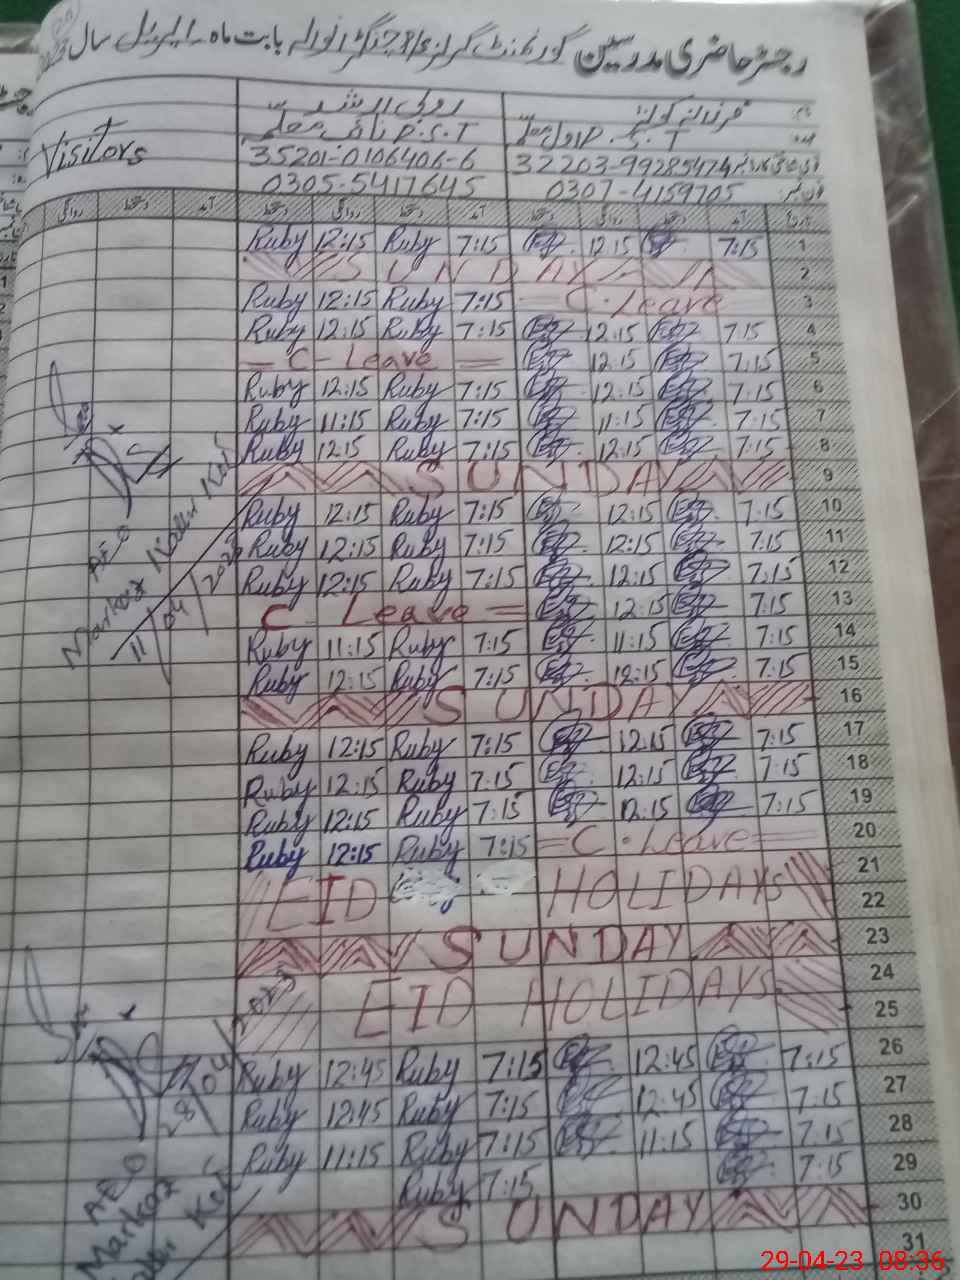 رجسٹر حاضری مدرسین گورنمنٹ گرلز بابت ماہ اپریل سال
Visitors
روبی
P.S.T
P.S.T
35201-0106406-6 32203-99285474
0305-5417645 0307-4159705
Ruby 12:15 Ruby 7:15 12.15 7:15 1
SUNDAY 2
Ruby 12:15 Ruby 7:15 C. Leave 3
Ruby 12:15 Ruby 7:15 12.15 7.15 4
C - Leave 12.15 7.15 5
Ruby 12:15 Ruby 7:15 12.15 7.15 6
Ruby 11:15 Ruby 7:15 11.15 7:15 7
Ruby 12:15 Ruby 7:15 12.15 7.15 8
SUNDAY 9
Ruby 12:15 Ruby 7:15 12:15 7.15 10
Ruby 12:15 Ruby 7:15 12:15 7.15 11
Ruby 12:15 Ruby 7:15 12:15 7.15 12
C Leave 12:15 7.15 13
Ruby 11:15 Ruby 7:15 11:15 7:15 14
Ruby 12:15 Ruby 7:15 12:15 7:15 15
SUNDAY 16
Ruby 12:15 Ruby 7:15 12:15 7:15 17
Ruby 12:15 Ruby 7:15 12:15 7:15 18
Ruby 12:15 Ruby 7:15 12:15 7:15 19
Ruby 12:15 Ruby 7:15 C. Leave 20
21
EID HOLIDAYS 22
SUNDAY 23
24
EID HOLIDAYS 25
Ruby 12:45 Ruby 7:15 12:45 7:15 26
Ruby 12:45 Ruby 7:15 12:45 7:15 27
Ruby 11:15 Ruby 7:15 11:15 7.15 28
Ruby 7:15 7:15 29
SUNDAY 30
31
AEO
Markaz
11/04/2023
28/04/2023
AEO
Markaz
29-04-23 08:36